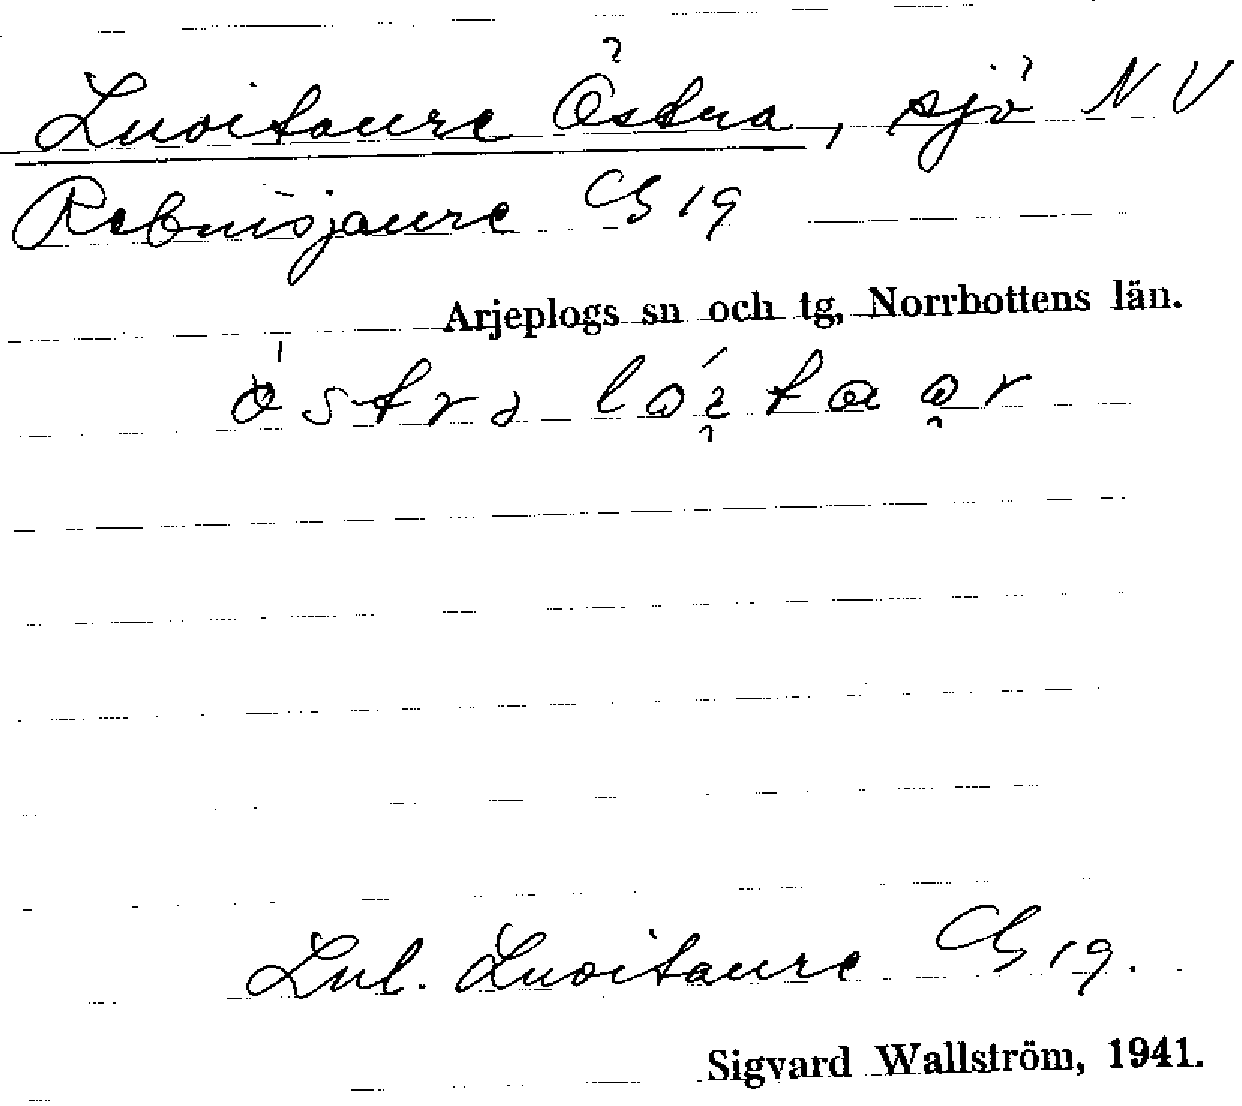 Luoitaure Östra, sjö NV
Rebnisjaure G 19
Arjeplogs sn och tg, Norrbottens län.
östra
Lul. Luoitaure G 19.
Sigvard Wallström, 1941.